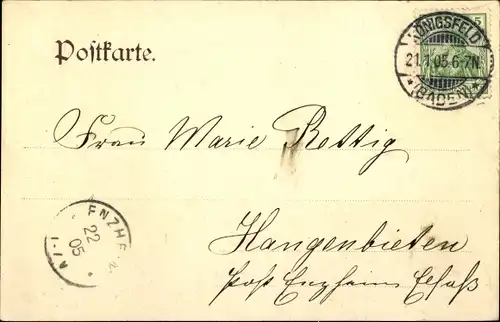 Postkarte.
5
KÖNIGSFELD
21.1.05.6-7N.
(BADEN)
Frau Marie Rettig
Hangenbieten
Post Enzheim Elsaß
ENZHE
22
05